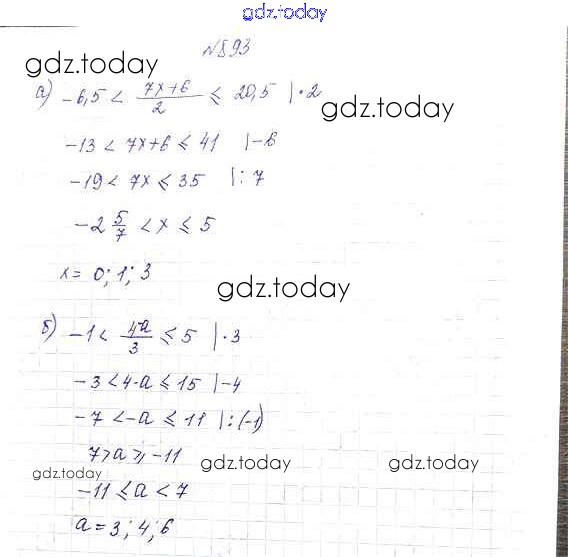 gdz.today
№893
gdz.today
а) -6,5 < (7x+6)/2 ≤ 20,5 | ·2
gdz.today
-13 < 7x+6 ≤ 41 | -6
-19 < 7x ≤ 35 | : 7
-2 5/7 < x ≤ 5
x = 0; 1; 3
gdz.today
б) -1 < 4-a/3 ≤ 5 | ·3
-3 < 4-a ≤ 15 | -4
-7 < -a ≤ 11 | : (-1)
7 > a ≥ -11
gdz.today gdz.today gdz.today
-11 ≤ a < 7
a = 3; 4; 6